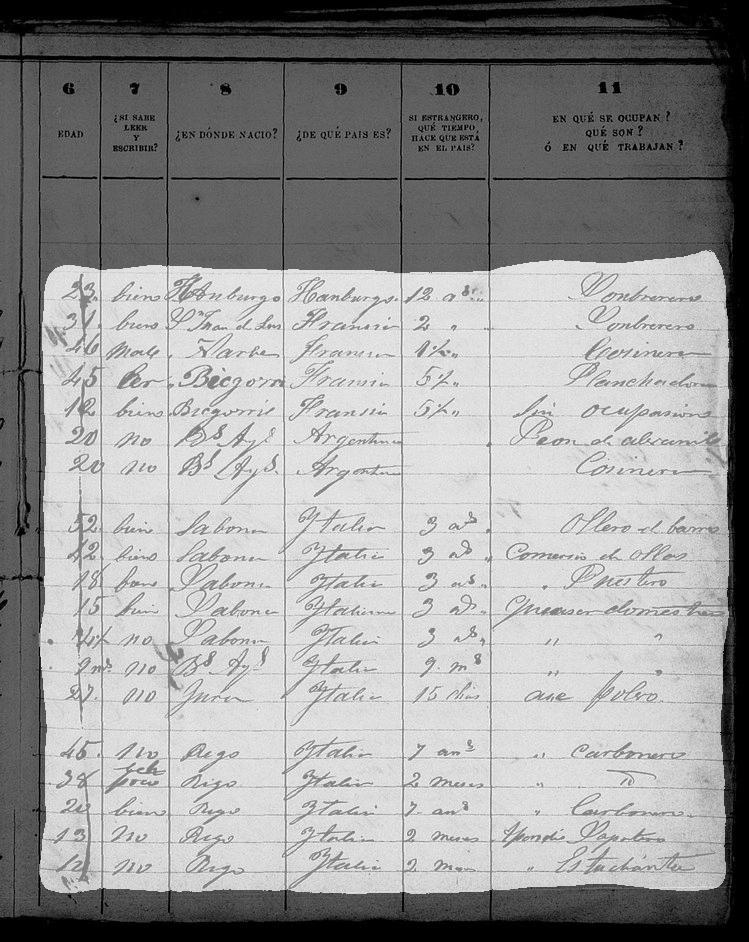 6 7 8 9 10 11
EDAD ¿SI SABE LEER Y ESCRIBIR? ¿EN DÓNDE NACIO? ¿DE QUÉ PAIS ES? SI ESTRANGERO, QUÉ TIEMPO HACE QUE ESTÁ EN EL PAIS? EN QUÉ SE OCUPAN? QUÉ SON? Ó EN QUÉ TRABAJAN?
23. biens Hanburgo Hanburgo. 12 as „ Sonbrerero
31. biens Sn Juan de Lus Fransia 2 „ Sonbrerero
46 Fransia Cosinera
45 Ler Biegorri Fransia 5½ „ Planchadora
12 biens Biegorrie Fransia 5½ „ Sin ocupasions
20 no Bs Ays Argentina Peon de
20 no Bs Ays. Argentina Cosinera
52. bien Sabona Ytalia 3 as. Ollero d barro
42. biens Sabona Ytalia 3 as „ Comersio de ollas
18. Sabona Ytalia 3 as. „ Puestero
15 bien Sabona Ytaliana 3 as.
no Sabona Ytalia 3 as. „ „
9 ms. no Bs Ays Ytalia 9. ms „ „
27. no Ytalia 15 dias polero.
45. no Rigo Ytalia 7 ans „ Carbonero
38 poco Rigo Ytalia 2 meses „ D
20 biens Rigo Ytalia 7. ans „ Carbonero.
13. no Rigo Ytalia 2 meses Sapatero
12 no Rigo Ytalia 2. „ Estudiante